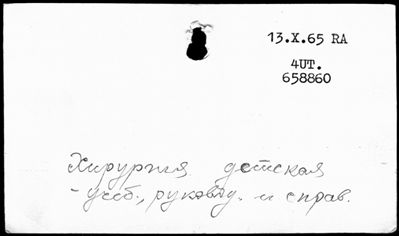 13.X.65 RA
4UT.
658860
Хирургия детская
- учеб., руковод. и справ.